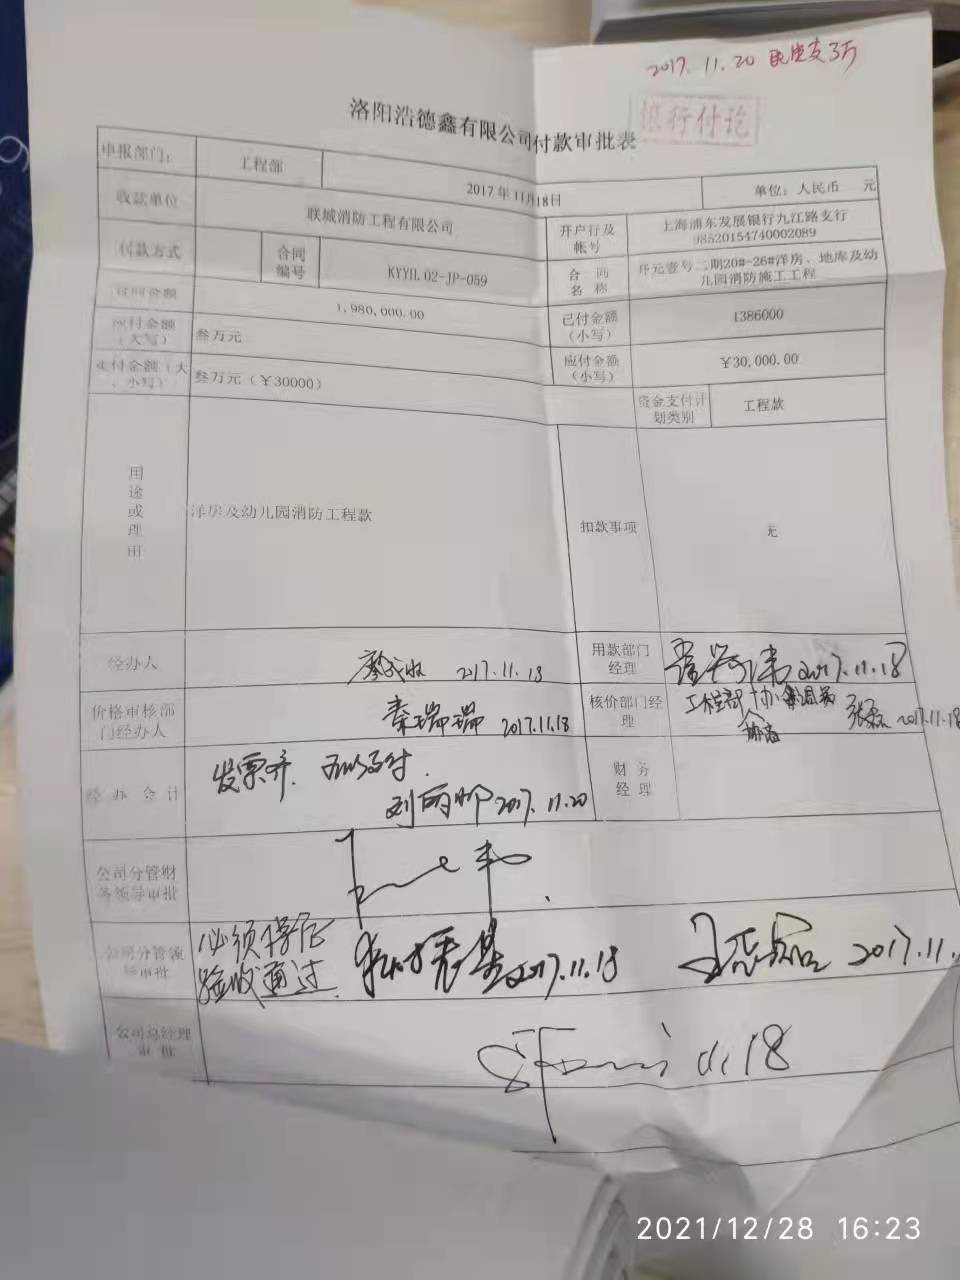 2017.11.20 民生支3万
银行付讫
洛阳浩德鑫有限公司付款审批表
申报部门: 工程部 2017年11月18日 单位:人民币 元
收款单位 联城消防工程有限公司 开户行及帐号 上海浦东发展银行九江路支行
98520154740002089
付款方式 合同编号 KYYII.02-JP-059 合同名称 开元壹号二期20#-26#洋房、地库及幼
儿园消防施工工程
合同金额 1,980,000.00 已付金额(小写) 1386000
应付金额(大写) 叁万元 应付金额(小写) ¥30,000.00
支付金额(大、小写) 叁万元(¥30000)
资金支付计划类别 工程款
用途或理由 洋房及幼儿园消防工程款 扣款事项 无
经办人 2017.11.18 用款部门经理 2017.11.18
价格审核部门经办人 秦瑞瑞 2017.11.18 核价部门经理 工程部 张磊 2017.11.18
经办会计 发票齐. 可以支付. 财务经理
2017.11.20
公司分管财务领导审批
公司分管领导审批 必须得后
验收通过. 2017.11.18 2017.11.
公司总经理审批 11.18
2021/12/28 16:23